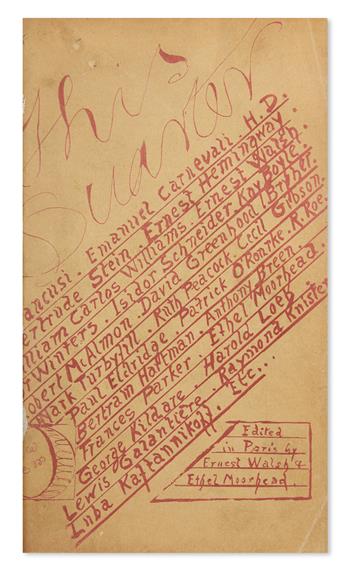 this
Quarter
ancusi. Emanuel Carnevali. H.D.
ertrude Stein. Ernest Hemingway.
lliam Carlos Williams. Ernest Walsh.
r Winters. Isidor Schneider. Kay Boyle.
obert McAlmon. David Greenhood. Bryher.
Mark Turbyfill. Ruth Peacock. Cecil Gibson.
Paul Eldridge. Patrick O'Rorke. R. Roe.
Bertram Hartman. Anthony Breen.
Frances Parker. Ethel Moorhead.
George Kildare. Harold Loeb.
Lewis Galantière. Raymond Knister
Luba Kaftannikoff. Etc...
Edited
in Paris by
Ernest Walsh &
Ethel Moorhead.